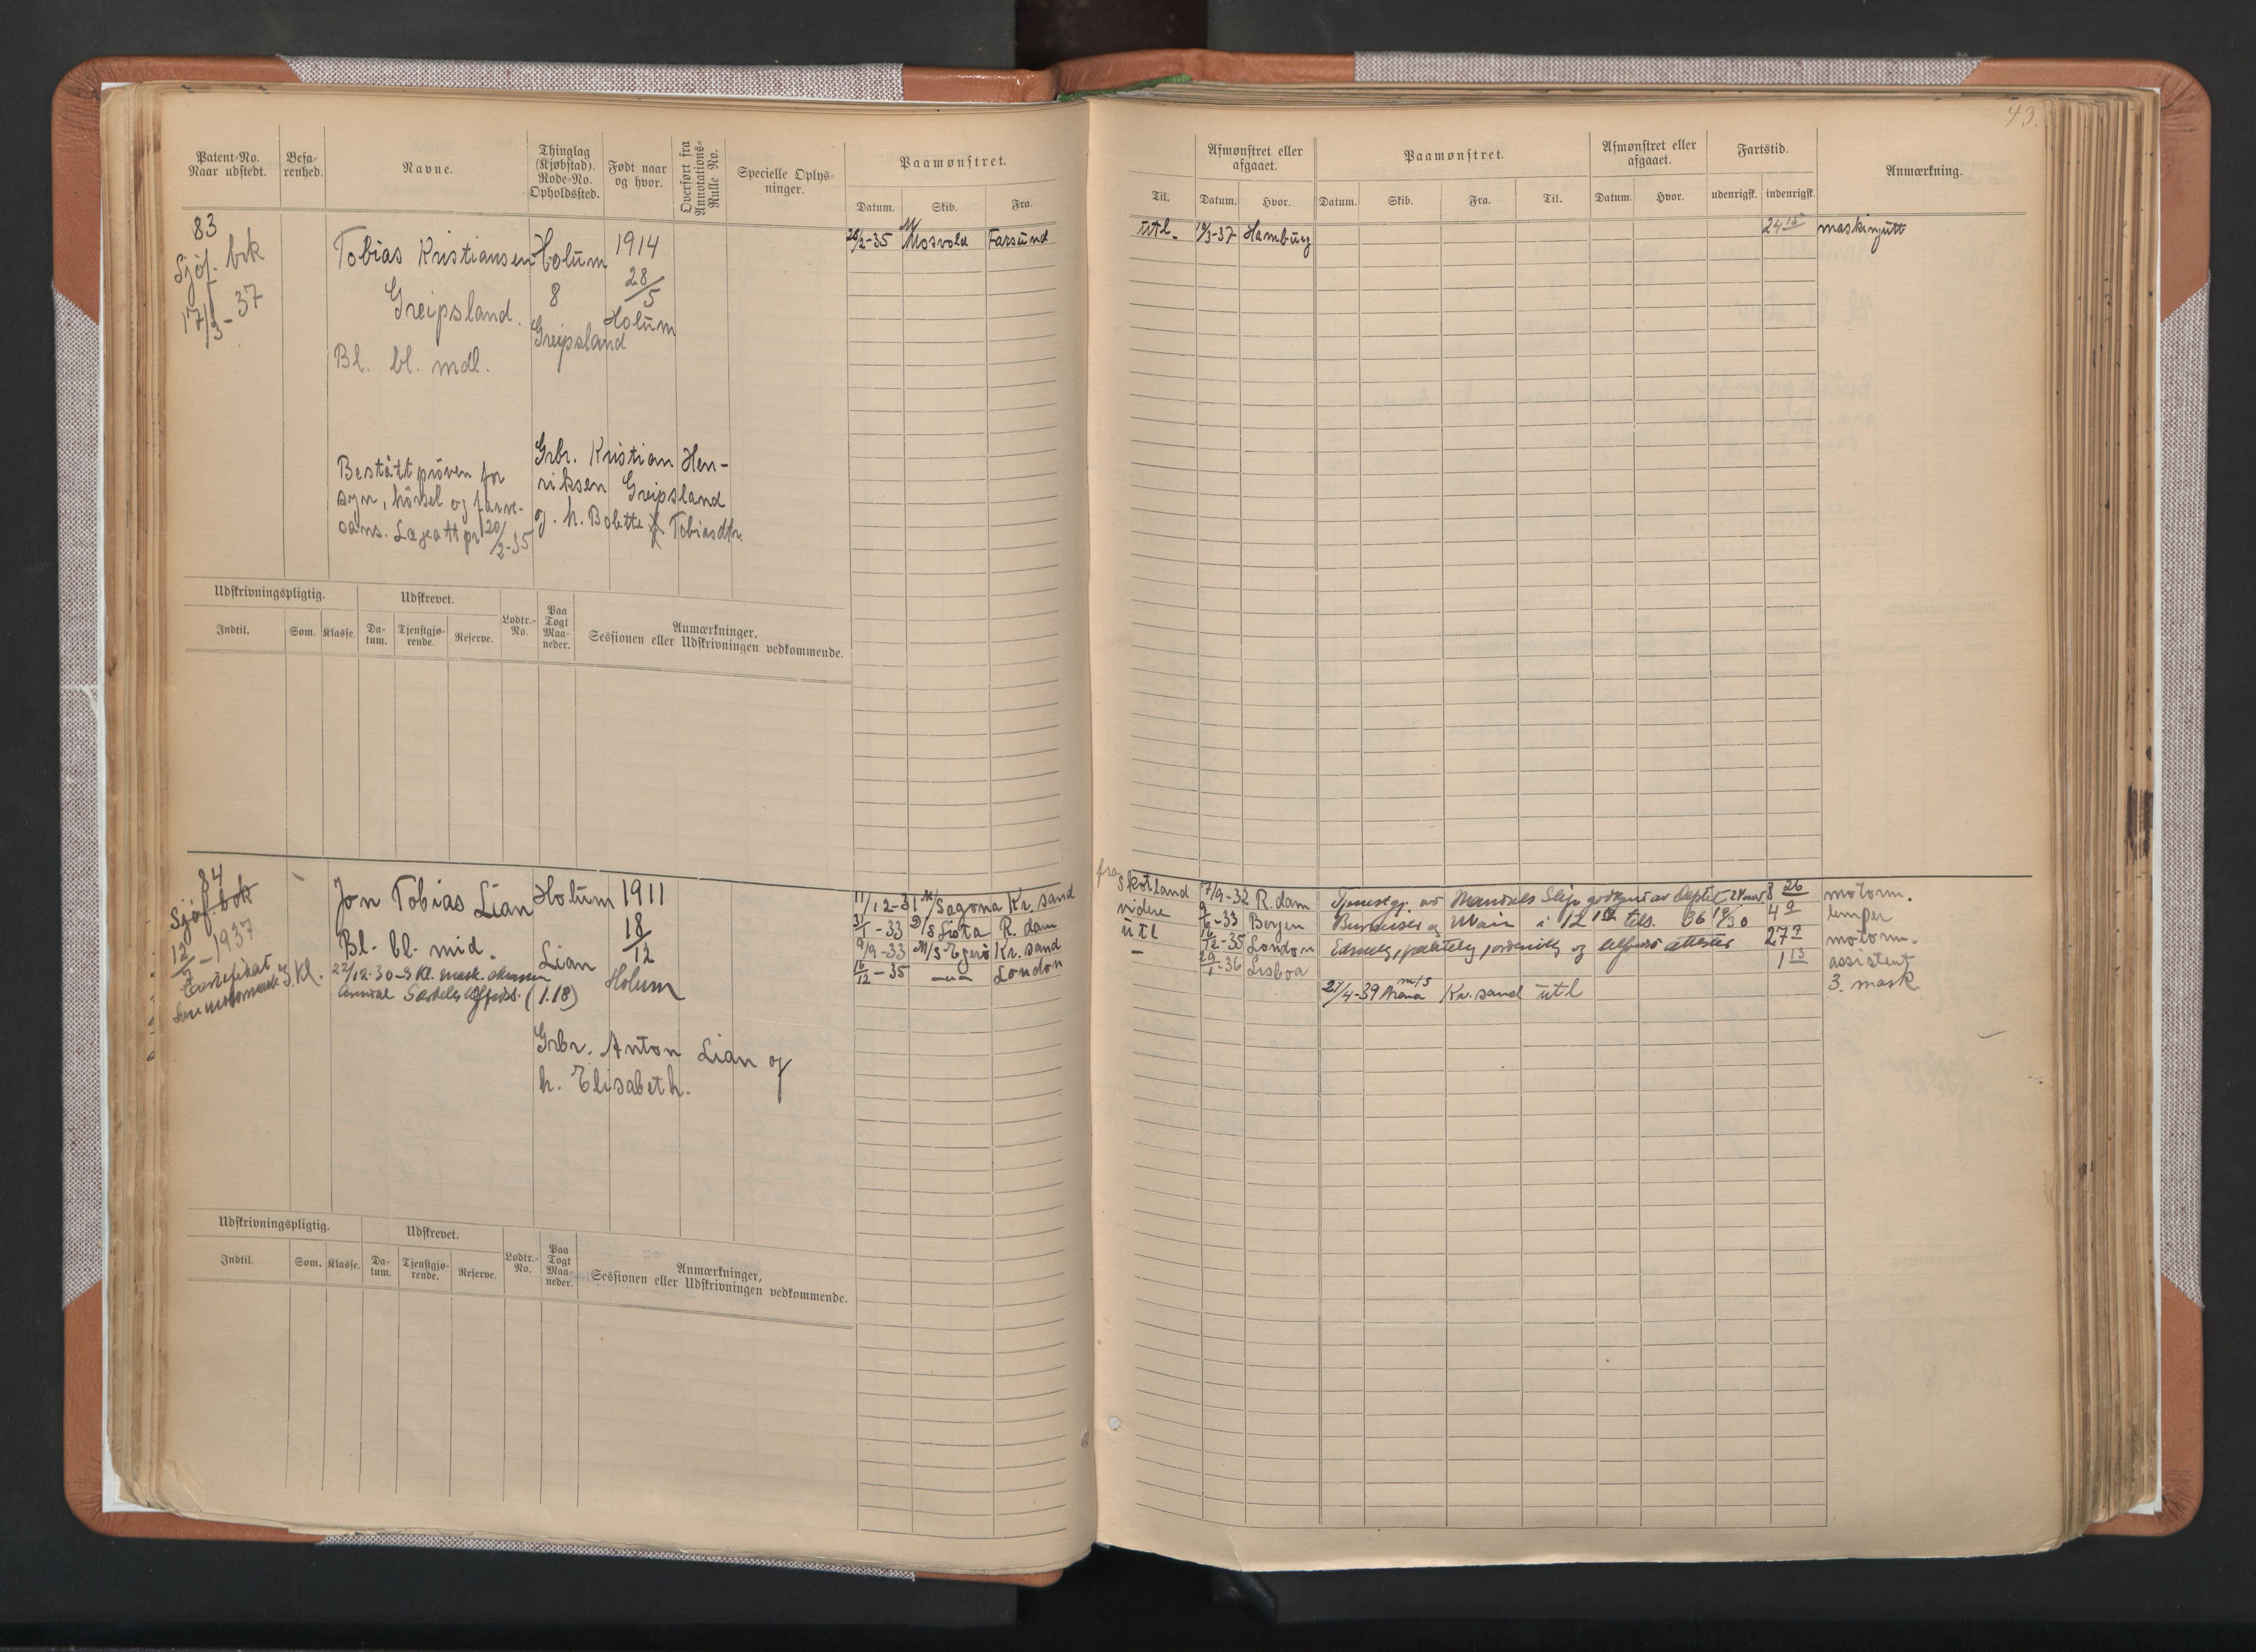 43.
Patent-No. Naar udstedt.
Befa-renhed.
Navne.
Thinglag (Kjøbstad). Rode-No. Opholdssted.
Født naar og hvor.
Overført fra Annotations-Rulle No.
Specielle Oplys-ninger.
Paamønstret.
Datum. Skib. Fra.
Til.
Afmønstret eller afgaaet.
Datum. Hvor.
Paamønstret.
Datum. Skib. Fra. Til.
Afmønstret eller afgaaet.
Datum. Hvor.
Fartstid.
udenrigsk. indenrigsk.
Anmærkning.
83
Sjøf. bok
17/3-37
Tobias Kristiansen
Greipsland.
Bl. bl. mdl.
Holum
8
Greipsland
1914
28/5
Holum
26/2-35 M Mosvold Farsund
utl. 18/3-37 Hamburg 24 15 maskingutt
Bestått prøven for
syn, hørsel og farve-
sans. Lægeatt pr 20/2-35
Grbr. Kristian Hen-
riksen Greipsland
og h. Bolette Tobiasdtr.
Udskrivningspligtig.
Udskrevet.
Lodtr.-No.
Paa Togt Maa-neder.
Anmærkninger,
Sessionen eller Udskrivningen vedkommende.
Indtil. Som. Klasse. Da-tum. Tjenstgjø-rende. Reserve.
84
Sjøf. bok
12/7-1937
Certifikat
som motormask 3 Kl.
Jon Tobias Lian
Bl. bl. mid.
22/12-30-3 Kl. mask.
(1.18)
Holum
Lian
1911
18/12
Holum
Grbr. Anton Lian og
h. Elisabeth.
11/12-31 M/S Sagona Kr.sand
31/1-33 D/S Lista R.dam
9/9-33 M/S Egerø Kr.sand
16/12-35 -"- London
fra Skotland 7/9-32 R.dam Tjenestgj. av Mandals Slip godkjent av Dept. 8 26 motorm.
videre 9/6-33 Bergen Burmeister & Wain i 12 tils. 36 18/30 4 9 lemper
utl 16/12-35 London og attester 27 7 motorm.
- 29/1-36 Lisboa 1 13 assistent
21/4-39 m/s Kr.sand utl 3. mask
Udskrivningspligtig.
Udskrevet.
Lodtr.-No.
Paa Togt Maa-neder.
Anmærkninger,
Sessionen eller Udskrivningen vedkommende.
Indtil. Som. Klasse. Da-tum. Tjenstgjø-rende. Reserve.